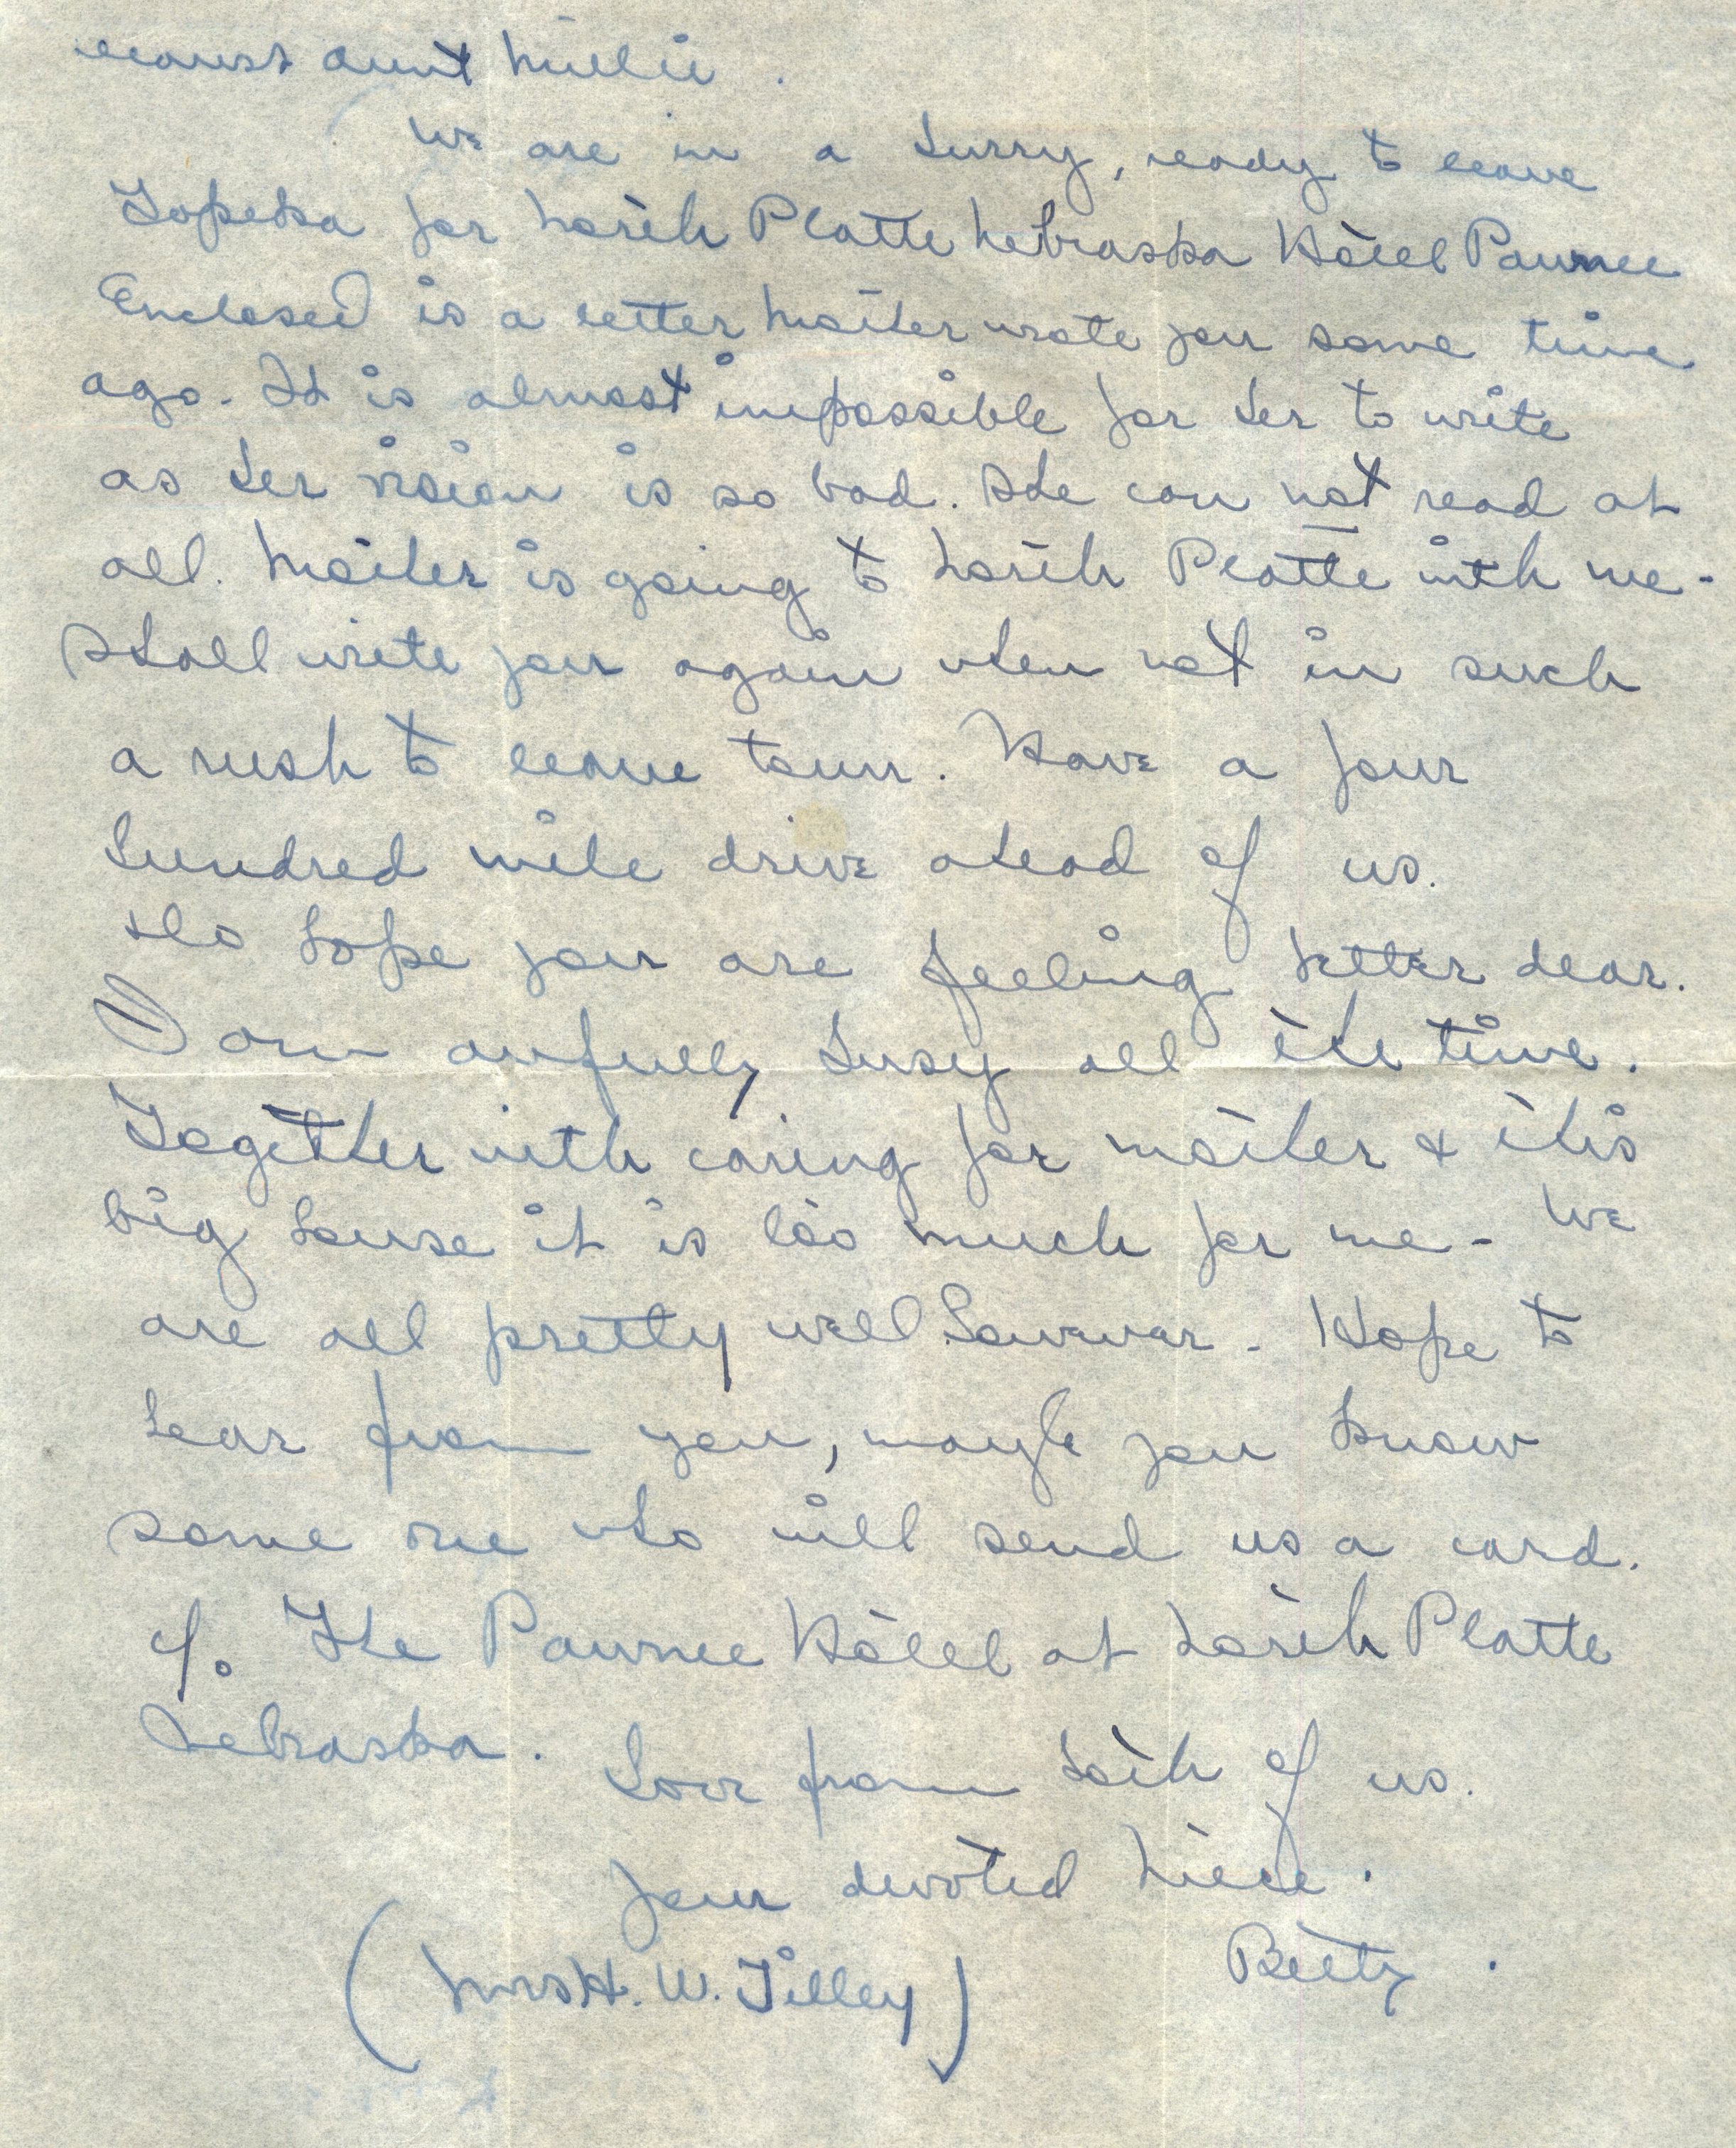 Dearest Aunt Millie.
We are in a hurry, ready to leave
Topeka for North Platte Nebraska Hotel Pawnee
Enclosed is a letter Mother wrote you some time
ago. It is almost impossible for her to write
as her vision is so bad. She can not read at
all. Mother is going to North Platte with me-
Shall write you again when not in such
a rush to leave town. Have a four
hundred mile drive ahead of us.
Do hope you are feeling better dear.
I am awfully busy all the time.
Together with caring for mother & this
big house it is too much for me - We
are all pretty well however - Hope to
hear from you, maybe you know
some one who will send us a card.
c/o The Pawnee Hotel at North Platte
Nebraska.
Love from both of us.
Your devoted Niece.
Betty.
(Mrs H. W. Tilley)